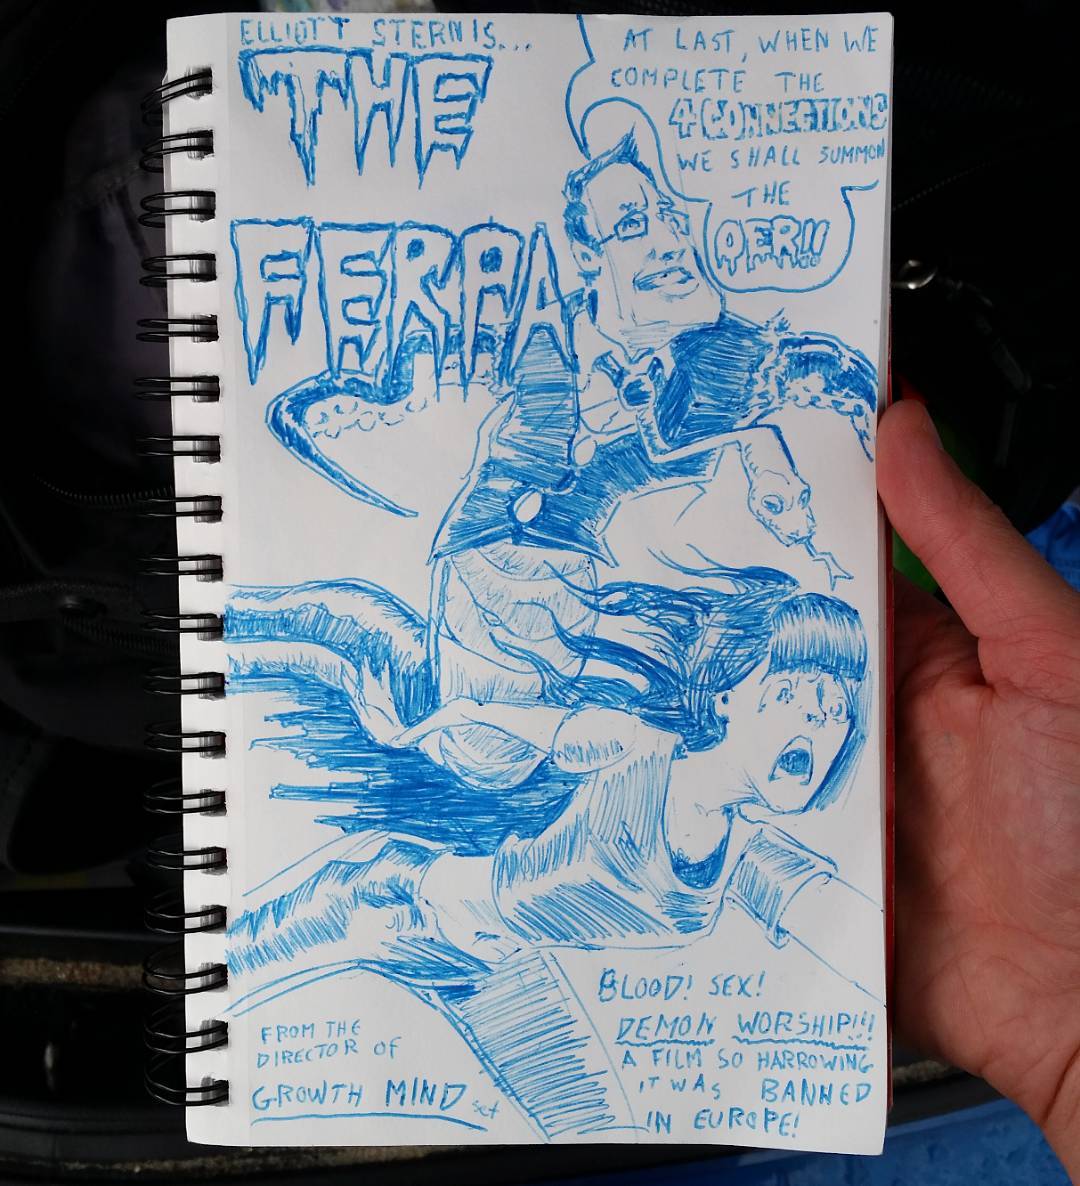 ELLIOTT STERN IS...
THE
FERPA
AT LAST, WHEN WE
COMPLETE THE
4 CONNECTIONS
WE SHALL SUMMON
THE
OER!!
FROM THE
DIRECTOR OF
GROWTH MIND set
BLOOD! SEX!
DEMON WORSHIP!!!
A FILM SO HARROWING
IT WAS BANNED
IN EUROPE!